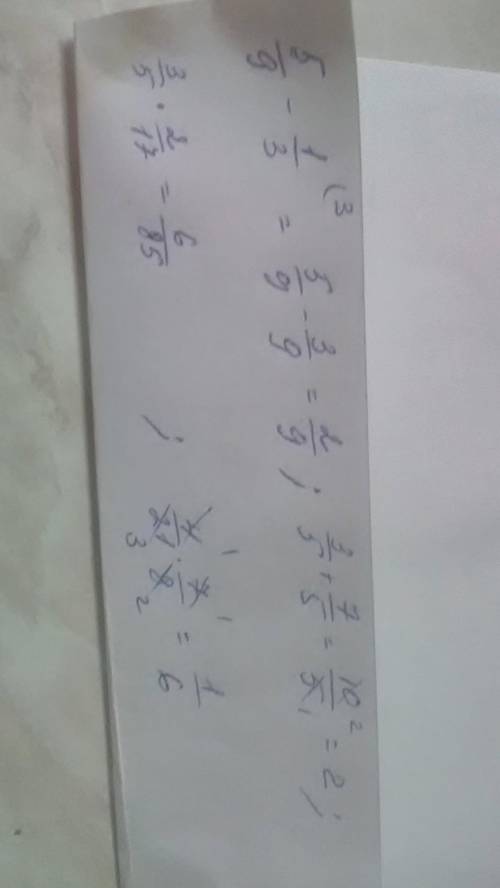 5/9 - 1/3 (3 = 5/9 - 3/9 = 2/9 ; 3/5 + 7/5 = 10/5 2 1 = 2 ;
3/5 · 2/17 = 6/85 ; 4/21 1 3 · 7/8 1 2 = 1/6